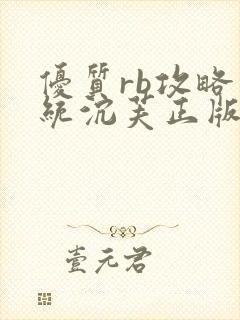 優質rb攻略
統沉芙正版
壹元君